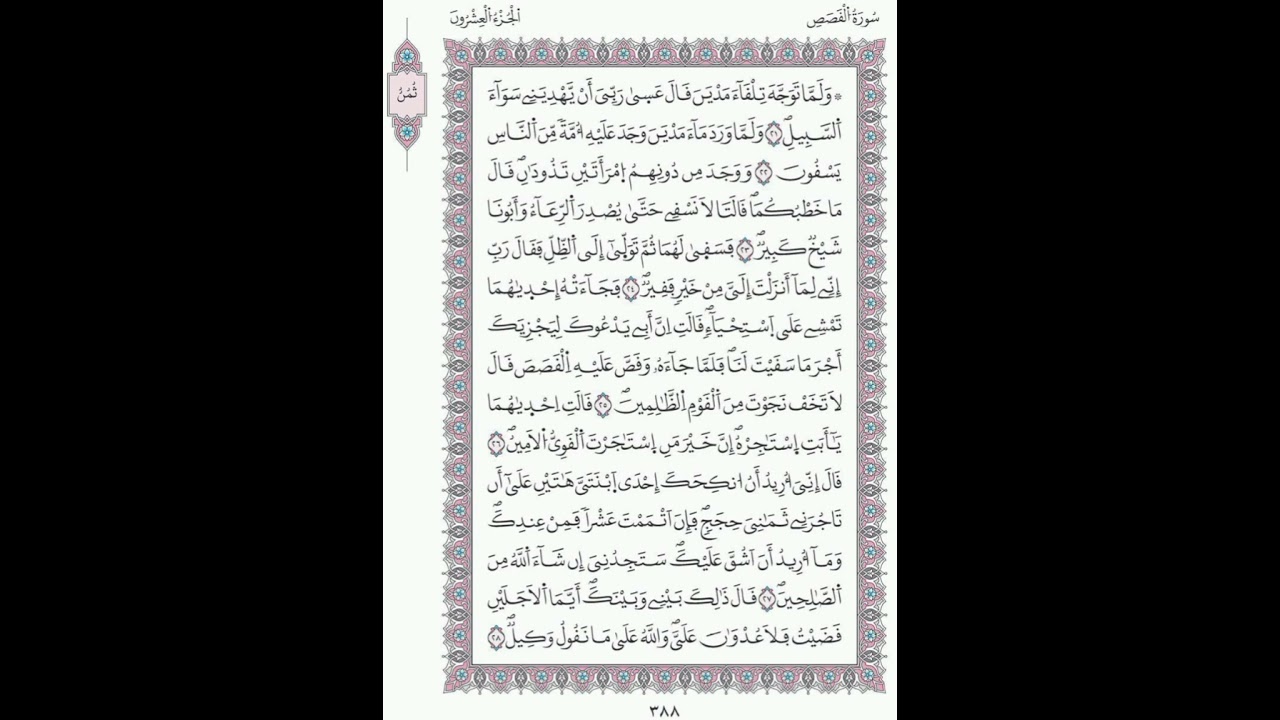 سُورَةُ الْقَصَصِ
الْجُزْءُ الْعِشْرُونَ
ثُمُنُ
۞ وَلَمَّا تَوَجَّهَ تِلْقَآءَ مَدْيَنَ قَالَ عَسٜىٰ رَبِّيَ أَنْ يَّهْدِيَنِے سَوَآءَ
اَ۬لسَّبِيلِۖ ٢١ وَلَمَّا وَرَدَ مَآءَ مَدْيَنَ وَجَدَ عَلَيْهِ أُمَّةٗ مِّنَ اَ۬لنَّاسِ
يَسْقُونَ ٢٢ وَوَجَدَ مِن دُونِهِمُ اُ۪مْرَأَتَيْنِ تَذُودَٰنِۖ قَالَ
مَا خَطْبُكُمَاۖ قَالَتَا لَا نَسْقِے حَتَّىٰ يُصْدِرَ اَ۬لرِّعَآءُ وَأَبُونَا
شَيْخٞ كَبِيرٞۖ ٢٣ فَسَقٜىٰ لَهُمَا ثُمَّ تَوَلّٜىٰٓ إِلَى اَ۬لظِّلِّ فَقَالَ رَبِّ
إِنِّے لِمَآ أَنزَلْتَ إِلَيَّ مِنْ خَيْرٖ فَقِيرٞۖ ٢٤ فَجَآءَتْهُ إِحْدٜيٰهُمَا
تَمْشِے عَلَى اَ۪سْتِحْيَآءٖۖ قَالَتِ اِنَّ أَبِے يَدْعُوكَ لِيَجْزِيَكَ
أَجْرَ مَا سَقَيْتَ لَنَاۖ فَلَمَّا جَآءَهُۥ وَقَصَّ عَلَيْهِ اِ۬لْقَصَصَ قَالَ
لَا تَخَفْ نَجَوْتَ مِنَ اَ۬لْقَوْمِ اِ۬لظَّٰلِمِينَۖ ٢٥ قَالَتِ اِحْدٜيٰهُمَا
يَٰٓأَبَتِ اِ۪سْتَٰجِرْهُۖ إِنَّ خَيْرَ مَنِ اِ۪سْتَٰجَرْتَ اَ۬لْقَوِيُّ اُ۬لَامِينُۖ ٢٦
قَالَ إِنِّيَ أُرِيدُ أَنُ ا۟نكِحَكَ إِحْدَى اَ۪بْنَتَيَّ هَٰتَيْنِ عَلَىٰٓ أَن
تَاجُرَنِے ثَمَٰنِيَ حِجَجٖۖ فَإِنَ اَتْمَمْتَ عَشْراٗ فَمِنْ عِندِكَۖ
وَمَآ أُرِيدُ أَنَ اَشُقَّ عَلَيْكَۖ سَتَجِدُنِيَ إِن شَآءَ اَ۬للَّهُ مِنَ
اَ۬لصَّٰلِحِينَۖ ٢٧ قَالَ ذَٰلِكَ بَيْنِے وَبَيْنَكَۖ أَيَّمَا اَ۬لَاجَلَيْنِ
قَضَيْتُ فَلَا عُدْوَٰنَ عَلَيَّۖ وَاللَّهُ عَلَىٰ مَا نَقُولُ وَكِيلٞۖ ٢٨
٣٨٨